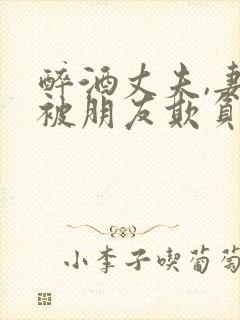 醉酒丈夫,妻
被朋友欺負
小李子喫葡萄